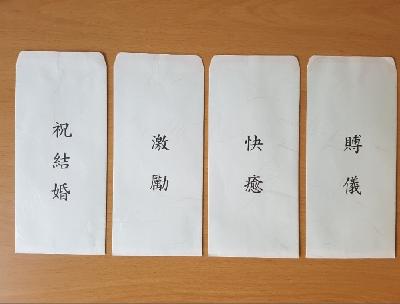 祝結婚
激勵
快癒
賻儀